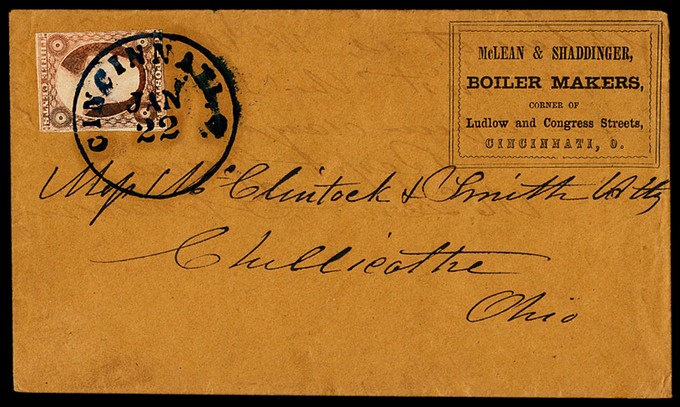 CINCINNATI. O.
JAN
22
McLEAN & SHADDINGER,
BOILER MAKERS,
CORNER OF
Ludlow and Congress Streets,
CINCINNATI, O.
Messrs McClintock & Smith Attys
Chillicothe
Ohio